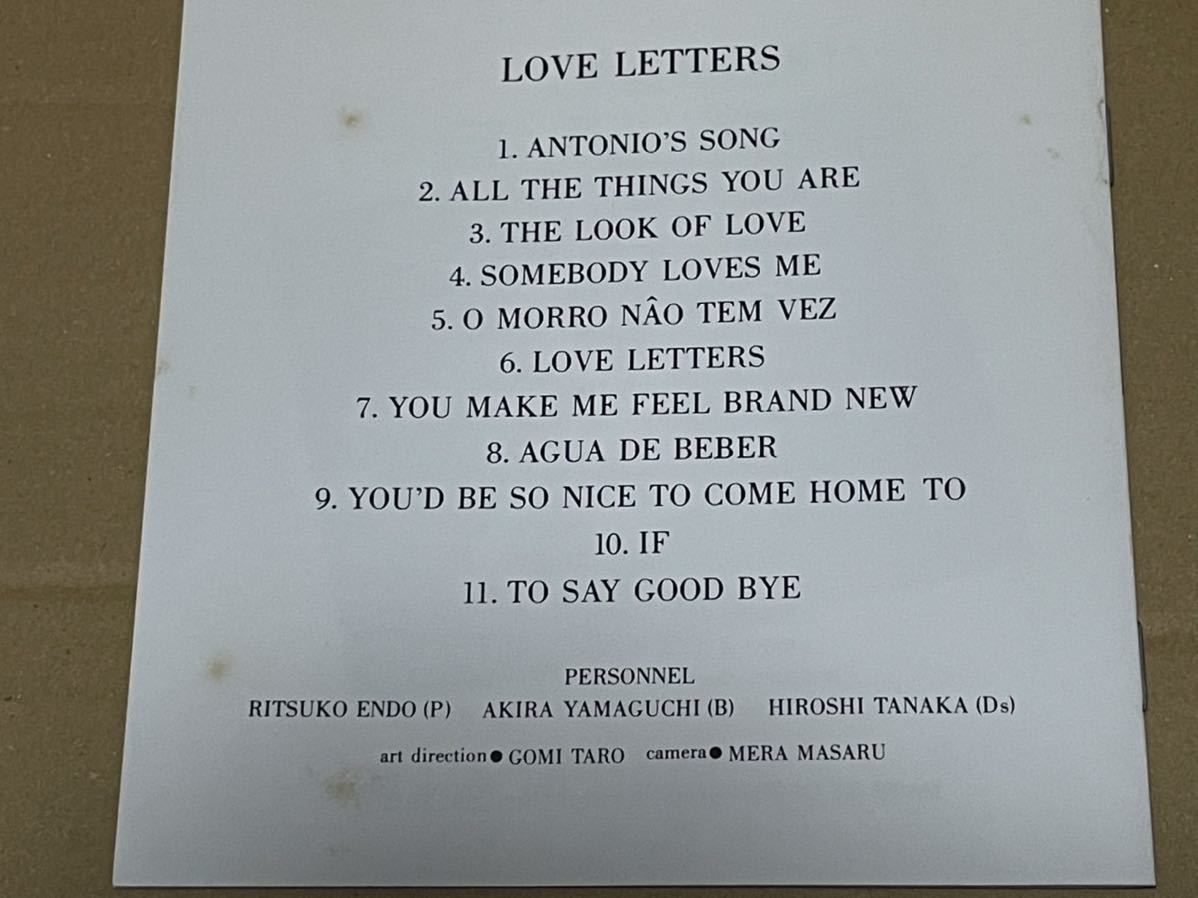 LOVE LETTERS
1. ANTONIO'S SONG
2. ALL THE THINGS YOU ARE
3. THE LOOK OF LOVE
4. SOMEBODY LOVES ME
5. O MORRO NÂO TEM VEZ
6. LOVE LETTERS
7. YOU MAKE ME FEEL BRAND NEW
8. AGUA DE BEBER
9. YOU'D BE SO NICE TO COME HOME TO
10. IF
11. TO SAY GOOD BYE
PERSONNEL
RITSUKO ENDO (P) AKIRA YAMAGUCHI (B) HIROSHI TANAKA (Ds)
art direction● GOMI TARO camera● MERA MASARU